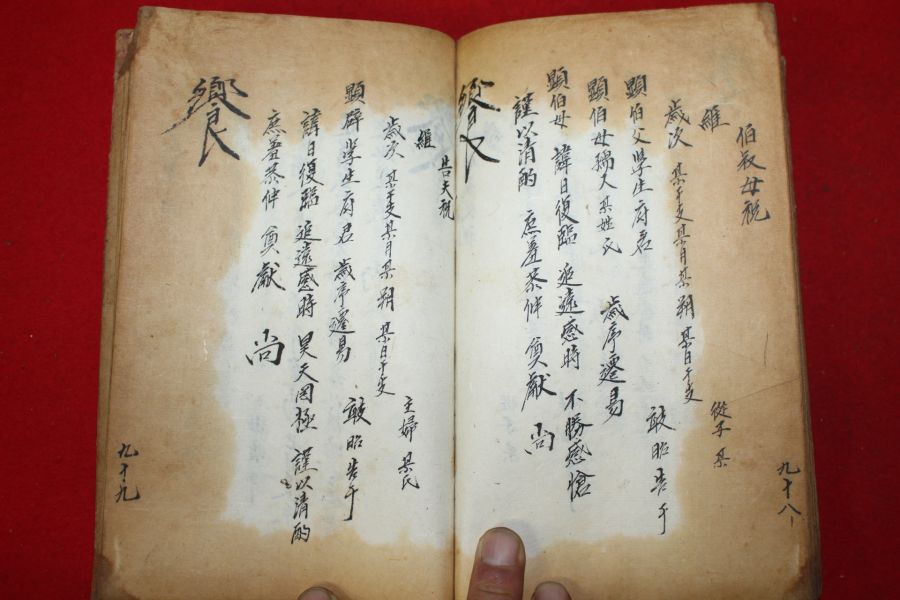 伯叔母祝
維
歲次 某干支某月某朔 某日干支
從子 某
敢昭告于
顯伯父學生府君
顯伯母孺人某姓氏 歲序遷易
顯伯母 諱日復臨 追遠感時 不勝感愴
謹以清酌 庶羞恭伸 奠獻 尚
饗
九十八
告夫祝
維
歲次 某干支某月某朔 某日干支
主婦 某氏
敢昭告于
顯辟學生府君 歲序遷易
諱日復臨 追遠感時 昊天罔極 謹以清酌
庶羞恭伸 奠獻 尚
饗
九十九